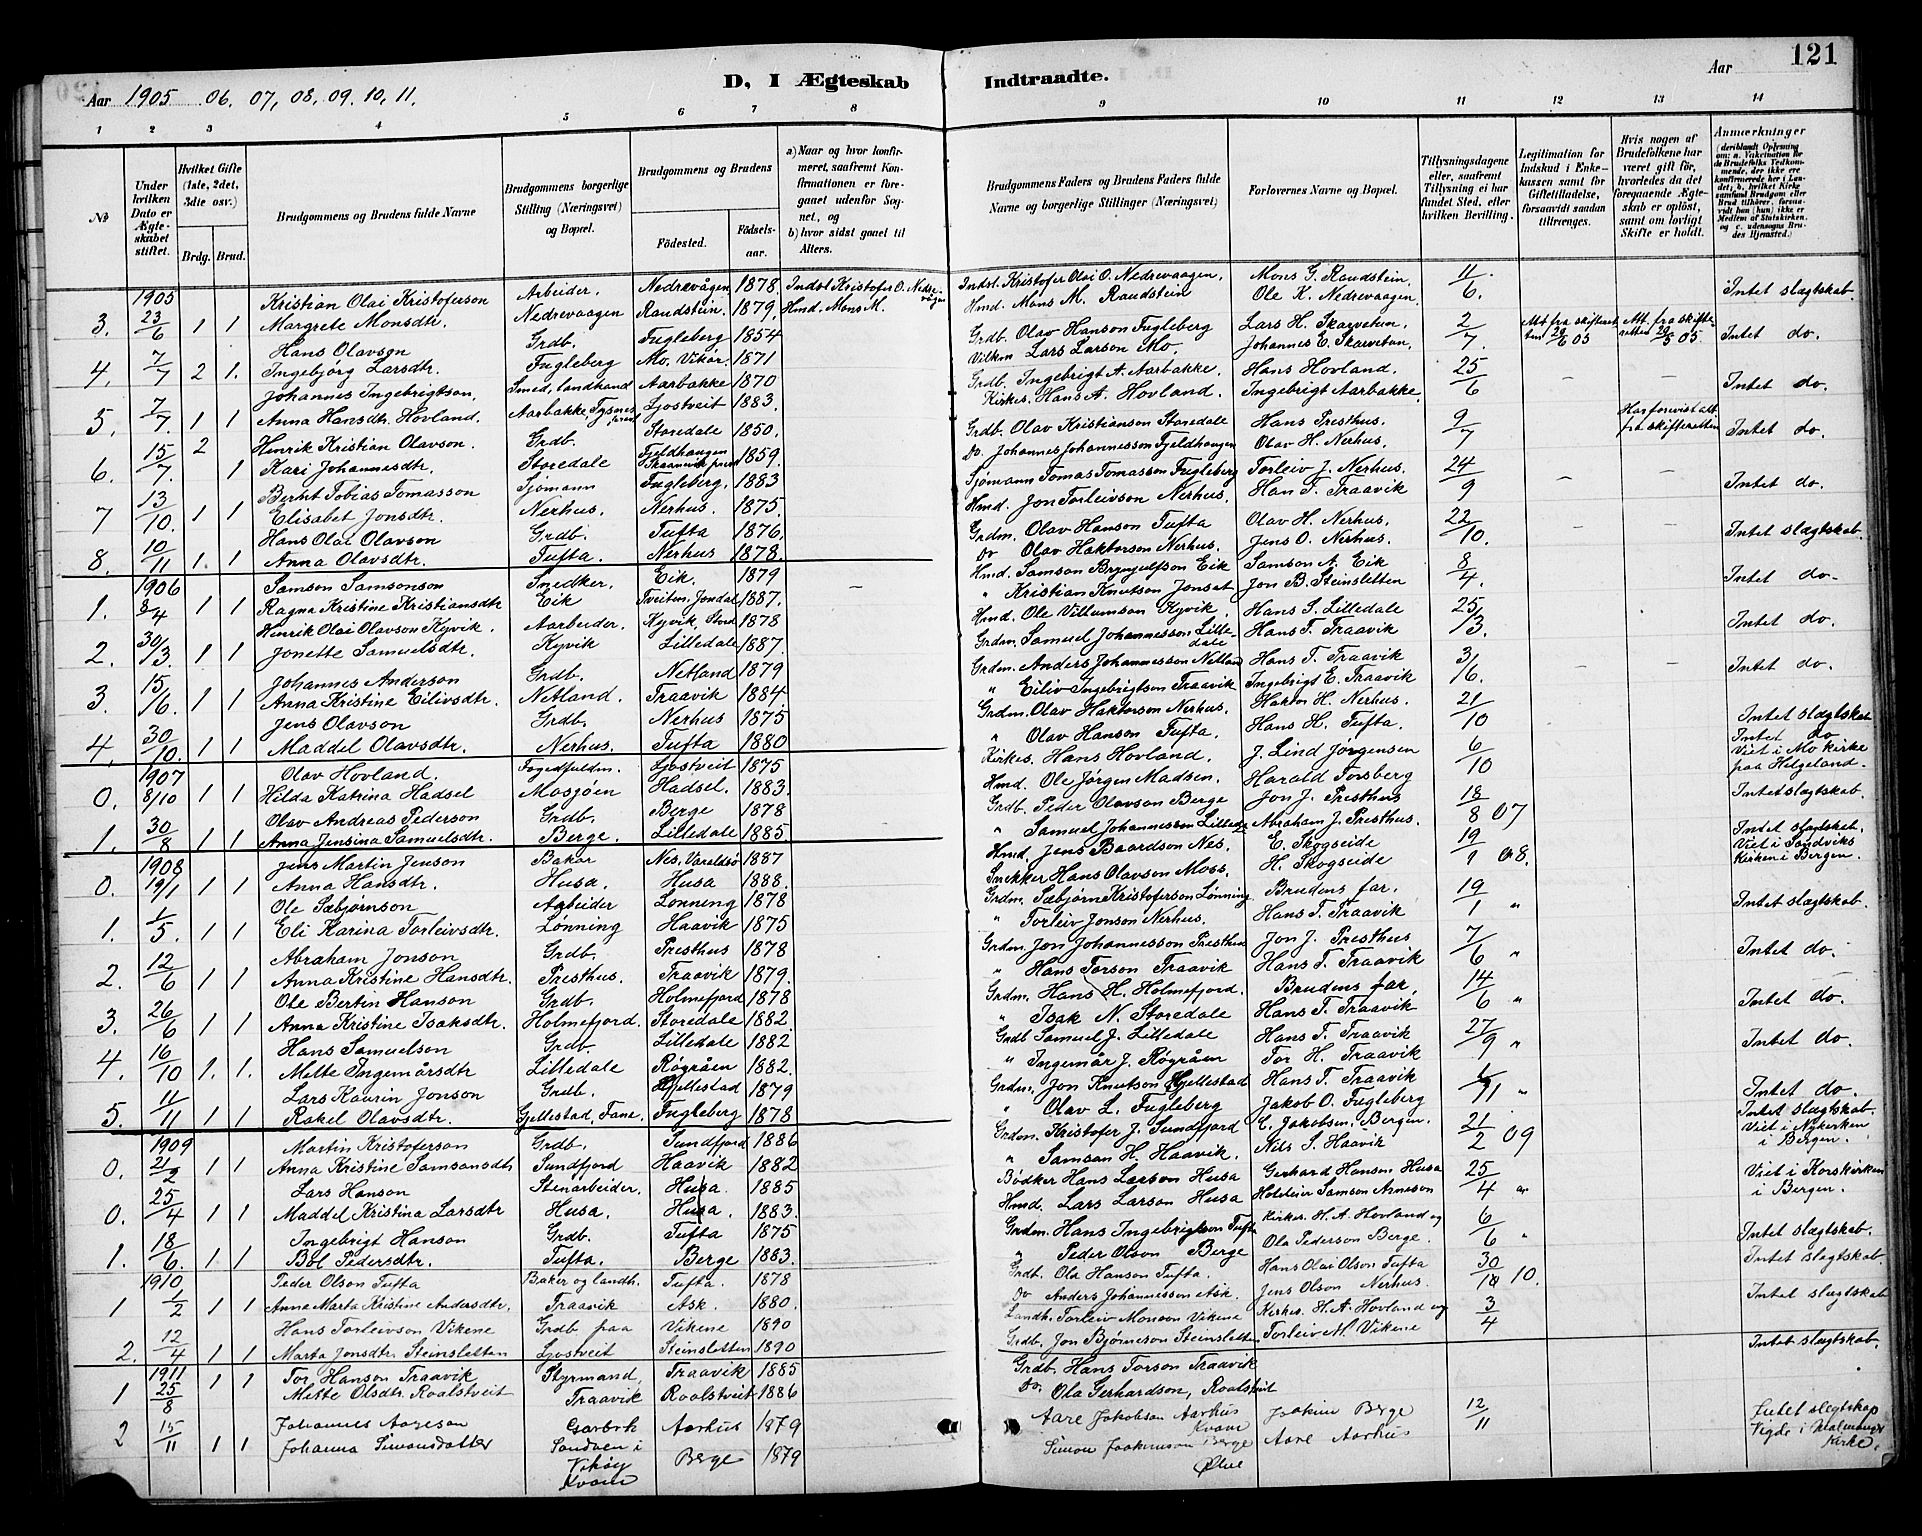 121
D, I Ægteskab Indtraadte.
Aar 1905 06. 07, 08, 09. 10, 11.
Aar
1 2 3 4 5 6 7 8 9 10 11 12 13 14
No
Under hvilken Dato er Ægteskabet stiftet.
Hvilket Gifte (1ste, 2det, 3die osv.)
Brdg. Brud.
Brudgommens og Brudens fulde Navne
Brudgommens borgerlige Stilling (Næringsvei) og Bopæl.
Brudgommens og Brudens
Födested. Födselsaar.
a) Naar og hvor konfirmeret, saafremt Konfirmationen er foregaaet udenfor Sognet, og
b) hvor sidst gaaet til Alters.
Brudgommens Faders og Brudens Faders fulde Navne og borgerlige Stillinger (Næringsvei)
Forlovernes Navne og Bopæl.
Tillysningsdagene eller, saafremt Tillysning ei har fundet Sted, efter hvilken Bevilling.
Legitimation for Indskud i Enkekassen samt for Giftetilladelse, forsaavidt saadan tiltrænges.
Hvis nogen af Brudefolkene har været gift för, hvorledes da det foregaaende Ægteskab er oplöst, samt om lovligt Skifte er holdt.
Anmærkninger
1905 Kristian Olai Kristoferson Arbeider. Nedrevågen 1878 Indst. Kristofer O. Nedrevågen Indst. Kristofer Olai O. Nedrevaagen, Mons G. Raudstein, 11/6. Intet slægtskab.
3. 23/6 1 1 Margrete Monsdtr. Nedrevaagen Raudstein. 1879. Hmd. Mons M. Hmd. Mons M. Raudstein Ole K. Nedrevaagen
Hans Olavson Grdb. Fugleberg 1854 Grdb. Olav Hanson Fugleberg Lars H. Skarvetun, 2/7. Att fra skifteretten 29/6 05 Att. fra skifteretten 29/5 05 Intet do.
4. 7/7 2 1. Ingebjörg Larsdtr. Fugleberg Mo. Vikør. 1871 Vilkm Lars Larson Mo. Johannes E. Skarvetun.
Johannes Ingebrigtson, Smed, landhand Aarbakke 1870 Grdb. Ingebrigt A. Aarbakke. Hans Hovland. 25/6 – – Intet do.
5. 7/7. 1 1 Anna Hansdtr. Hovland. Aarbakke, Tysnes Ljostveit 1883. Kirkes. Hans A. Hovland, Ingebrigt Aarbakke.
Henrik Kristian Olavson. Grdb. Storedale 1850. Grdb. Olav Kristianson Storedale Hans Presthus. 9/7 Har forevist att. fra skifteretten Intet do.
6. 15/7. 2 1 Kari Johannesdtr. Storedale Fjeldhaugen 1859. Do. Johannes Johannesson Fjeldhaugen Olav H. Nerhus.
Bernt Tobias Tomasson Sjömann Fugleberg, 1883 Sjømann Tomas Tomasson Fugleberg Torleiv J. Nerhus. 24/9 – – Intet do.
7 13/10. 1 1 Elisabet Jonsdtr. Nerhus. Nerhus. 1875. Hmd. Jon Torleivson Nerhus. Hans T. Traavik
Hans Olai Olavson Grdb. Tufta 1876. Grdm. Olav Hanson Tufta Olav H. Nerhus. 22/10. – – Intet slægtskab.
8. 10/11 1. 1 Anna Olavsdtr. Tufta. Nerhus 1878. Do Olav Haktorson Nerhus. Jens O. Nerhus.
1906 Samson Samsonson Snedker. Eik. 1879 – Hmd. Samson Brynjulfson Eik Samson A. Eik 8/4. Intet do.
1. 8/4 1 1 Ragna Kristine Kristiansdtr Eik Tveiten, Jondal 1887. " Kristian Knutson Jonset Jon B. Steinsletten
Henrik Olai Olavson Kyvik. Aarbeider. Kyvik, Stord 1878 Hmd. Ole Villumson Kyvik. Hans S. Lilledale 25/3. Intet do.
2. 30/3. 1 1 Jonette Samuelsdtr. Kyvik Lilledale 1887. Grdm. Samuel Johannesson Lilledale Hans T. Traavik
Johannes Anderson Grdb. Netland 1879 Grdm. Anders Johannesson Netland Hans T. Traavik 3/6. – – Intet do.
3. 15/6. 1 1 Anna Kristine Eilivsdtr. Netland. Traavik 1884. " Eiliv Ingebrigtson Traavik Ingebrigt E. Traavik
Jens Olavson Grdb. Nerhus 1875 Grdm. Olav Haktorson Nerhus. Haktor H. Nerhus. 21/10 Intet slægtskab
4, 30/10. 1 1 Maddel Olavsdtr. Nerhus. Tufta 1880 " Olav Hanson Tufta. Hans H. Tufta.
1907 Olav Hovland. Fogedfuldm. Ljostveit 1875 Kirkes. Hans Hovland. J. Lind Jørgensen 6/10 Intet do Viet i Mo kirke paa Helgeland.
0. 8/10 1 1 Hilda Katrina Hadsel Mosjøen Hadsel. 1883. Hmd. Ole Jørgen Madsen. Harald Forsberg
Olav Andreas Pederson Grdb. Berge 1878 Grdb. Peder Olavson Berge Jon J. Presthus 18/8 07 Intet slægtskab.
1. 30/8 1 1 Anna Jensina Samuelsdtr. Berge. Lilledale 1885 " Samuel Johannesson Lilledale Abraham J. Presthus.
1908 Jens Martin Jenson Bakar Nes, Varaldsö 1887 Hmd. Jens Baardson Nes. E. Skogseide 19/1 08. Intet slægtskab. Viet i Sandviks Kirken i Bergen.
0. 19/1 1 1 Anna Hansdtr. Husa. Husa 1888. Snekker Hans Olavson Moss. H. Skogseide
Ole Sæbjørnson Arbeider Lønning 1878 Grdm. Sæbjørn Kristoferson Lønning Brudens far. 19/1 " Intet slægtskab.
1. 1/5. 1 1 Eli Karina Torleivsdtr. Lønning Haavik 1875 " Torleiv Jonson Nerhus. Hans T. Traavik
Abraham Jonson Grdb. Presthus 1878 Grdm. Jon Johannesson Presthus Jon J. Presthus 7/6 " Intet do.
2. 12/6 1 1 Anna Kristine Hansdtr. Presthus. Traavik 1879. " Hans Torson Traavik Hans T. Traavik
Ole Bertin Hanson Grdb. Holmefjord 1878 Grdm. Hans H. Holmefjord. Brudens far. 14/6 " Intet do.
3. 26/6 1 1 Anna Kristine Isaksdtr. Holmefjord. Storedale 1882 " Isak N. Storedale Hans T. Traavik
Hans Samuelson Grdb Lilledale 1882 Grdb Samuel J. Lilledale Hans T. Traavik 27/9 " Intet do.
4. 16/10 1. 1. Mette Ingemårsdtr Lilledale Røgråen 1882. " Ingemår J. Røgråen Tor H. Traavik
Lars Kaurin Jonson Grdb. Hjellestad 1879 Grdm. Jon Knutson Hjellestad Hans T. Traavik 1/11 " Intet do.
5. 11/11 1 1 Rakel Olavsdtr. Gjellestad, Fane Fugleberg 1878 " Olav L. Fugleberg Jakob O. Fugleberg
1909 Martin Kristoferson Grdb. Sundfjord 1886 Grdm. Kristofer J. Sundfjord C. Jakobsen, Bergen. 21/2 09 Intet slægtskab. Viet i Nykirken i Bergen.
0. 21/2 1 1 Anna Kristine Samsonsdtr Sundfjord Haavik 1882 " Samson H. Haavik. Nils S. Haavik
Lars Hanson Stenarbeider. Husa. 1885 Bödker Hans Larson Husa Gerhard Hanson Husa 25/4 " Viet i Korskirken i Bergen.
0. 25/4 1 1 Maddel Kristina Larsdtr Husa. Husa. 1883. Hmd. Lars Larson Husa Samson Arneson
Ingebrigt Hanson Grdb. Tufta 1875 Grdm. Hans Ingebrigtson Tufta Kirkes. H. A. Hovland og 6/6 " Intet slægtskab.
1. 18/6. 1 1 Böl Pedersdtr. Tufta. Berge 1883. " Peder Olson Berge Ola Pederson Berge.
1910 Peder Olson Tufta Baker og landh. Tufta. 1878 Grdb. Ola Hanson Tufta. Hans Olai Olson Tufta 30/10 10. Intet slægtskab
1 1/2 1 1 Anna Marta Kristine Andersdtr. Traavik Ask. 1880. Do Anders Johannesson Ask. Jens Olson Nerhus. Intet slægtskab
Hans Torleivson Vikene Grdb paa Vikene 1890 Landh. Torleiv Monson Vikene Kirkes. H. A. Hovland og 3/4
2. 12/4 1 1 Marta Jonsdtr. Steinsletten Ljostveit Steinsletten 1890 Grdb. Jon Bjørneson Steinsletten Torleiv M. Vikene Intet slægtskab.
1911 Tor Hanson Traavik Styrmand, Traavik 1885 Grdb. Hans Torson Traavik
1 25/8 1 1 Mette Olsdtr. Roalstveit Traavik Roalstveit 1886 Do. Ola Gerhardson, Roalstveit
Johannes Aageson Gaardbr Aarhus 1879 Aare Jakobson Aarhus Kvam Joakim Berge 12/11 Intet slegtskap Vigde i Malmanger Kirke.
2 15/11 1 1 Johanna Simonsdatter Sandven i Vikøy Kvam Berge 1879 Simon Joakimson Berge Ølve Aare Aarhus